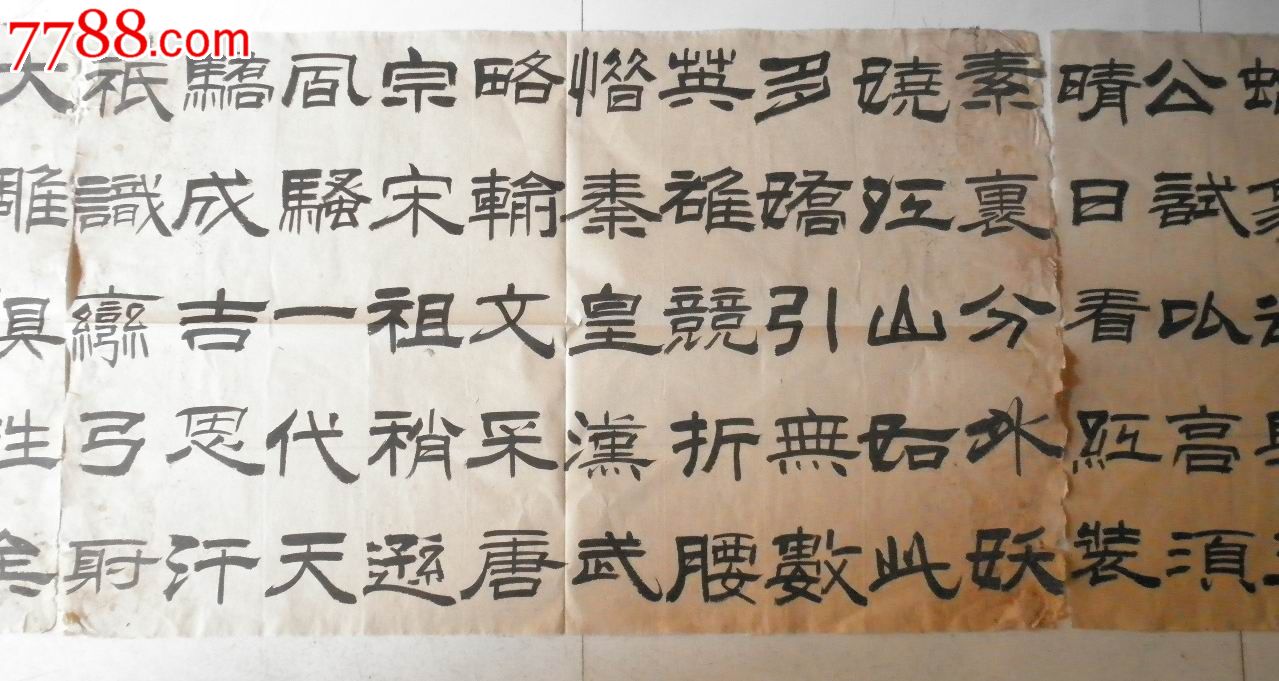 公試比高須
晴日看紅裝
素裹分外妖
嬈江山如此
多嬌引無數
英雄競折腰
惜秦皇漢武
略輸文采唐
宗宋祖稍遜
風騷一代天
驕成吉思汗
祇識彎弓射
大雕俱往矣
7788.com